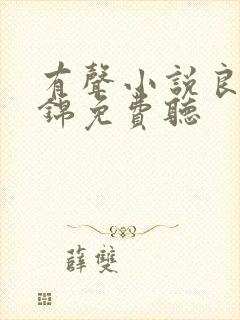 有聲小說良
錦免費聽
薛雙